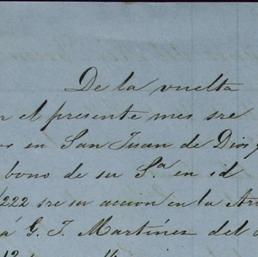 De la vuelta
n el presente mes sre
os en San Juan de Dios y
bono de su Sª en id
222 sre su accion en la Arr
á G. J. Martinez del